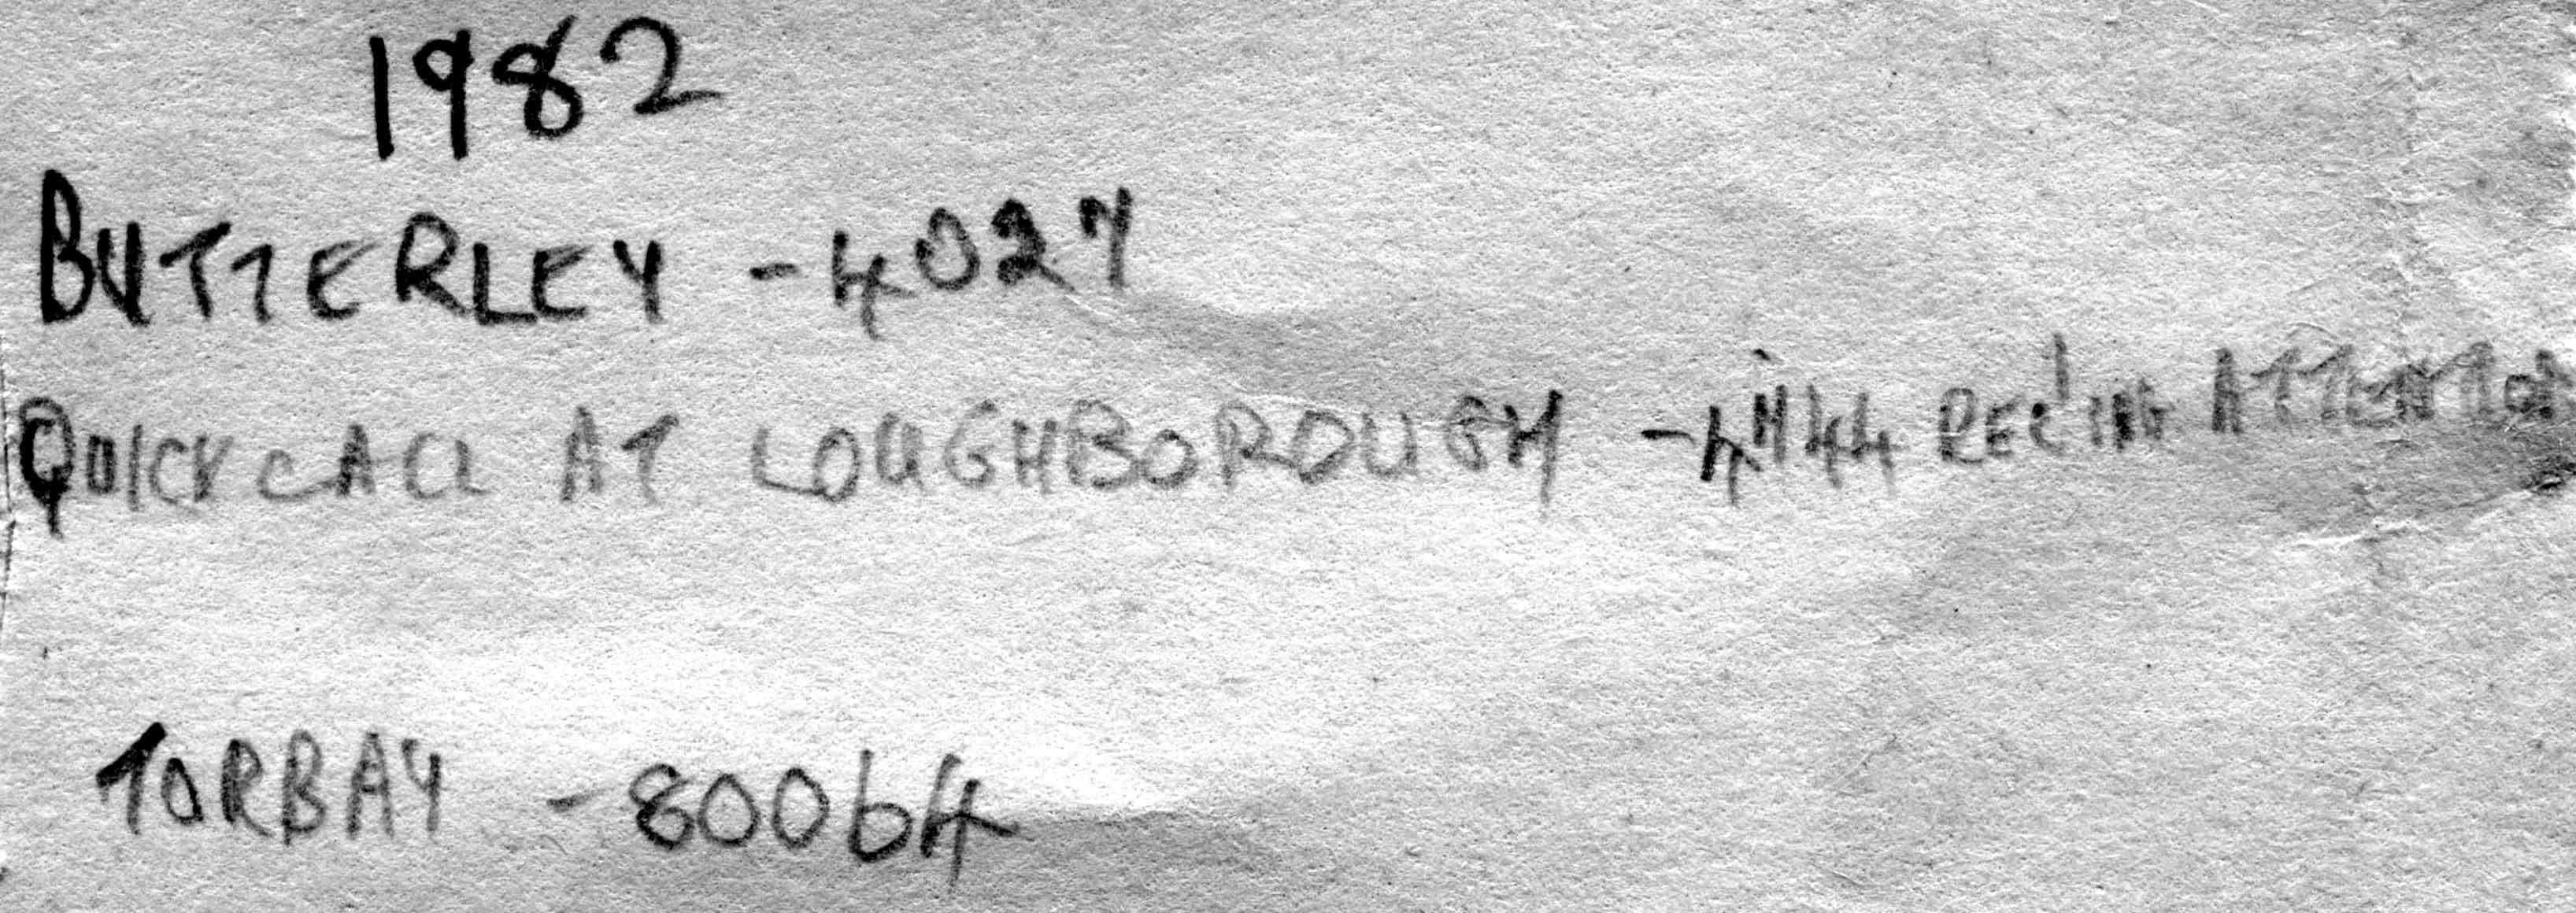 1982
BUTTERLEY - 4027
QUICK CALL AT LOUGHBOROUGH - 4744 REC'ING ATTENTION
TORBAY - 80064